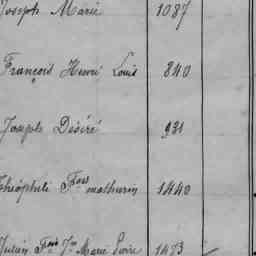 Joseph Marie 1087
François Henri Louis 840
Joseph Désiré 931
Théophile Fois mathurin 1440
Julien Fois Jn Marie 1473